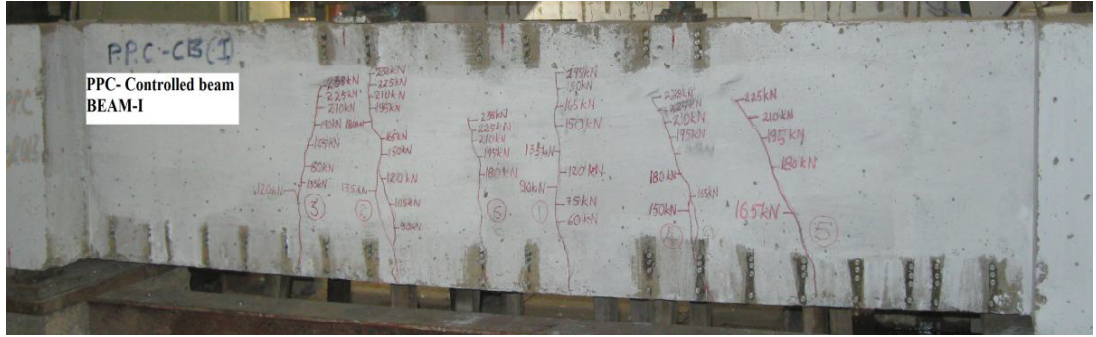 P.P.C-CB(I)
PPC- Controlled beam
BEAM-I
238kN
225kN
210kN
165kN
150kN
135kN
120kN
3
225kN
210kN
195kN
180kN
165kN
150kN
120kN
135kN
105kN
90kN
238kN
225kN
210kN
195kN
180kN
195kN
165kN
150kN
135kN
120kN
90kN
75kN
60kN
1
238kN
225kN
210kN
195kN
180kN
165kN
150kN
225kN
210kN
195kN
180kN
165kN
5